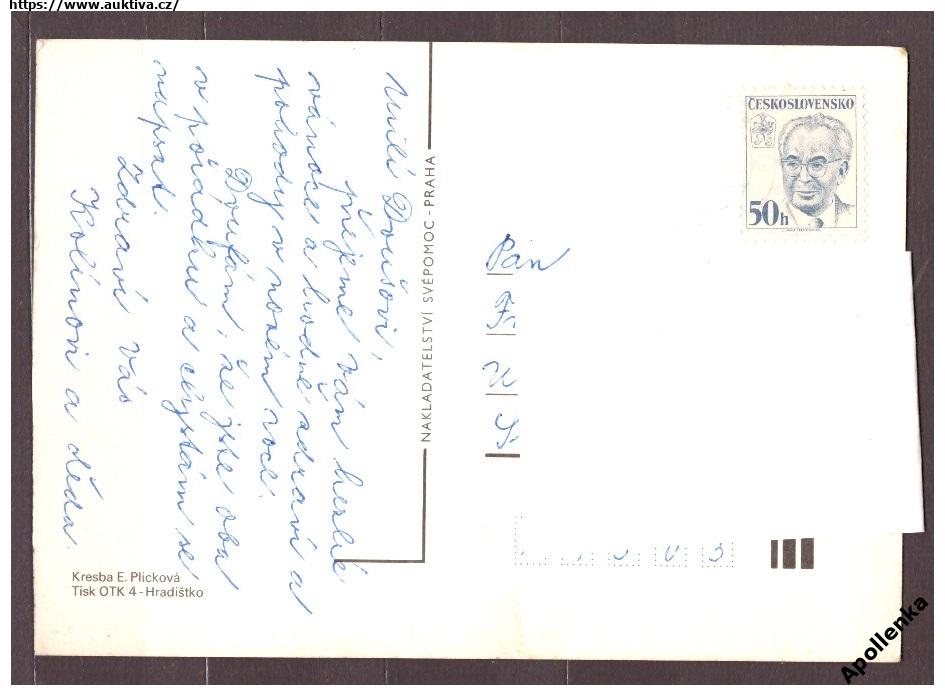 https://www.auktiva.cz/
Milí Doušovi,
přejeme vám hezké
vánoce a hodně zdraví a
pohody v novém roce.
Doufám, že jste oba
v pořádku a chystám se
napsat.
Zdraví vás
Kolínovi a děda.
NAKLADATELSTVÍ SVÉPOMOC - PRAHA
Kresba E. Plicková
Tisk OTK 4 - Hradištko
ČESKOSLOVENSKO
50h
Pan
Apollenka